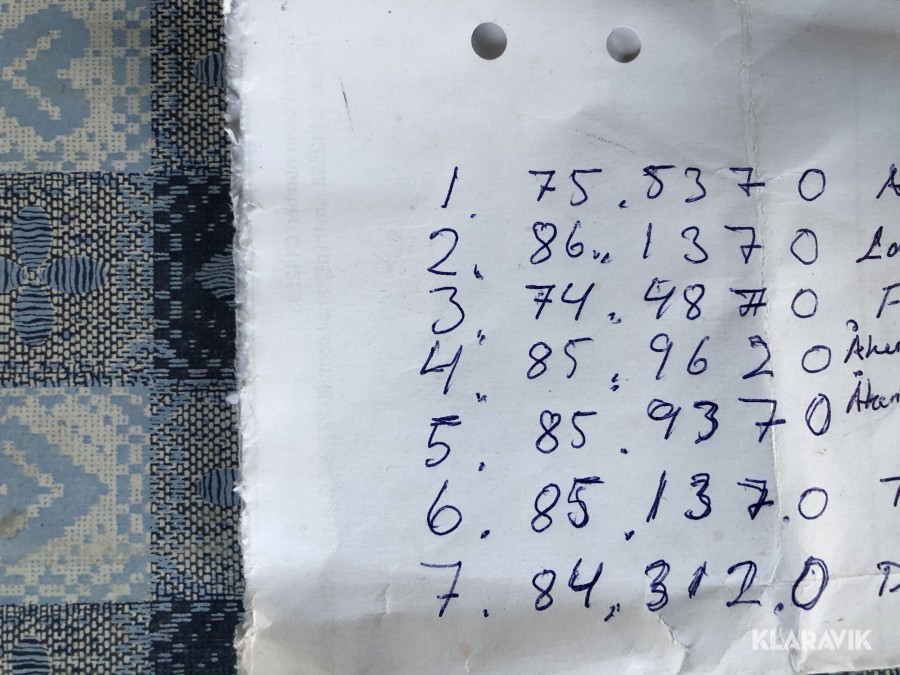 1. 75.5370
2. 86.1370
3. 74.4870
4. 85.9620
5. 85.9370
6. 85.137.0
7. 84.312.0
KLARAVIK